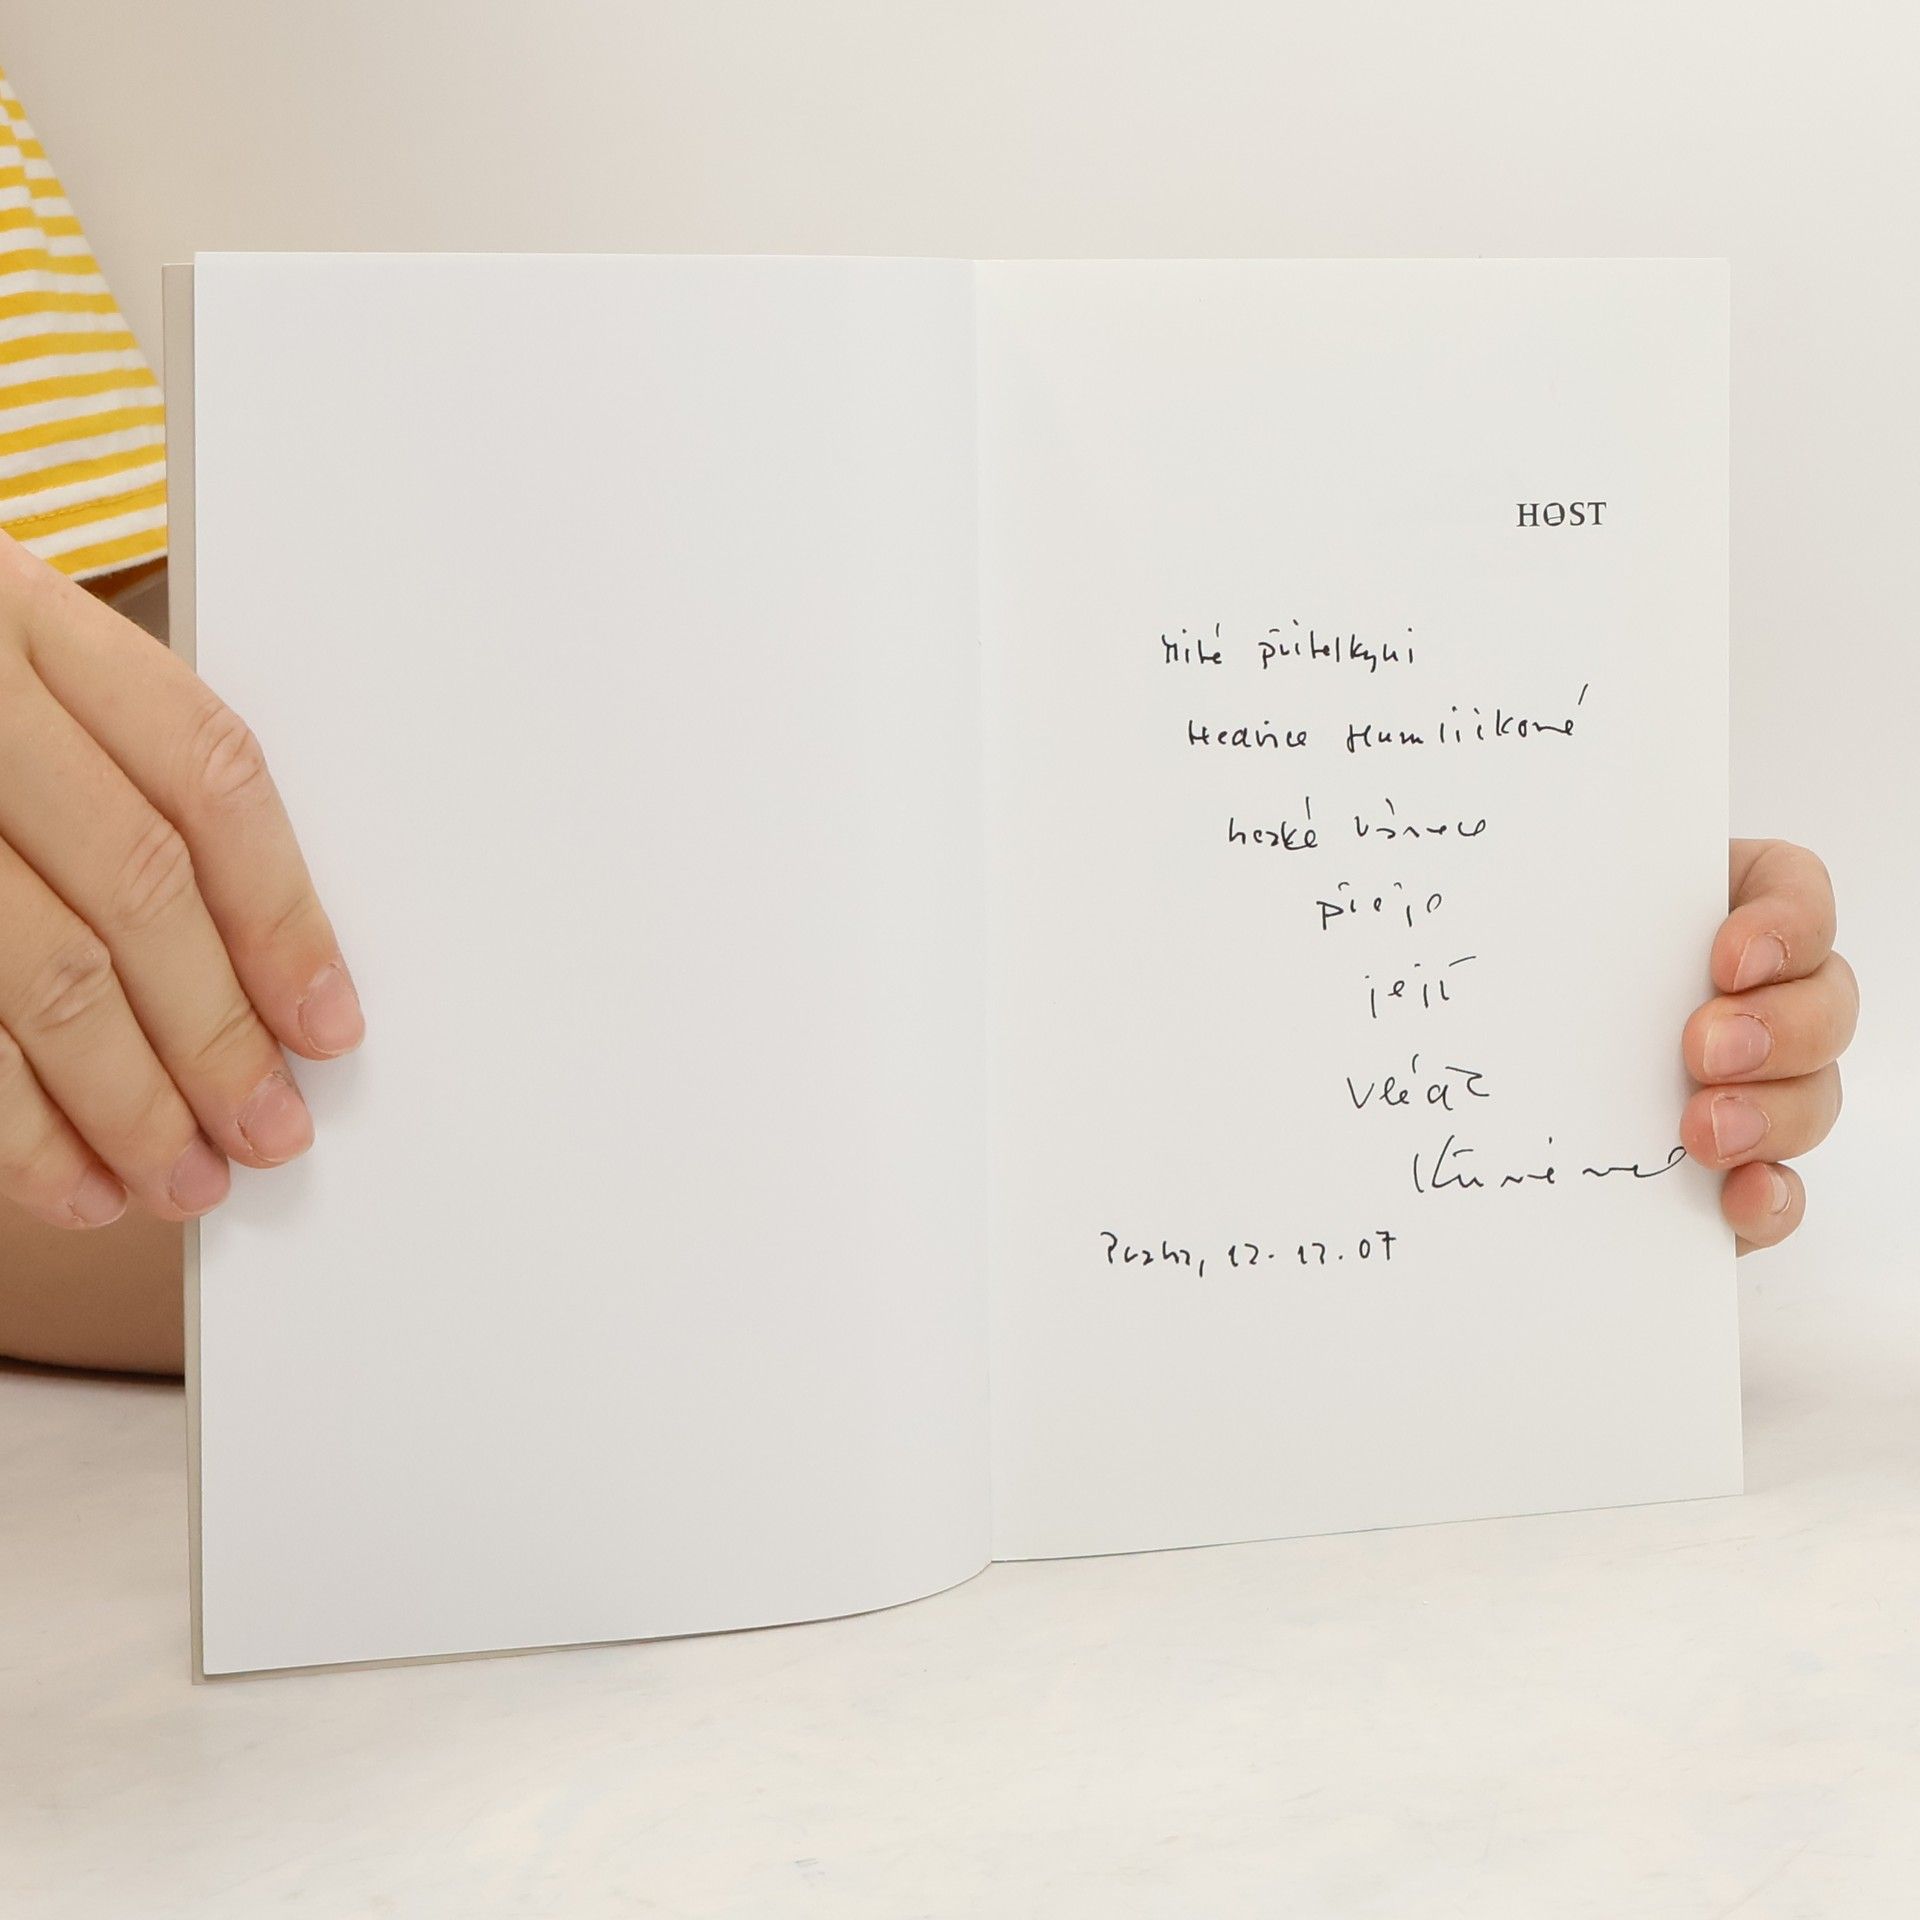 HOST
Milé přítelkyni
Hedvice Humlíčkové
hezké vánoce
přeje
její
Praha, 12. 12. 07